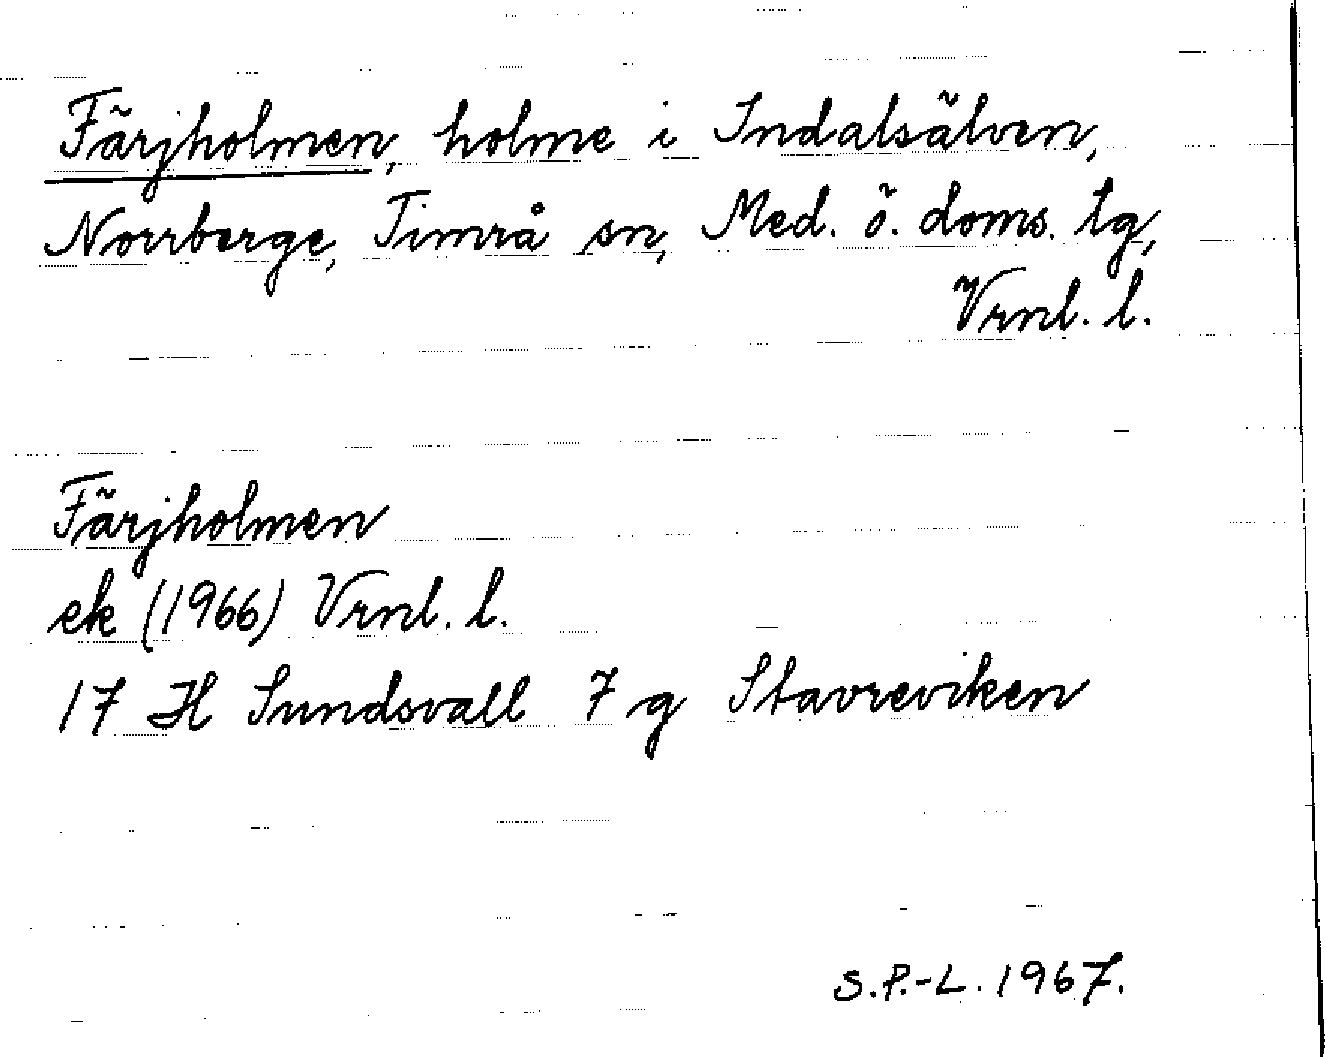 Färjholmen, holme i Indalsälven,
Norrberge, Timrå sn, Med. ö. doms. tg,
Vrnl. l.
Färjholmen
ek (1966) Vrnl. l.
17 H Sundsvall 7 g Stavreviken
S.P.-L. 1967.